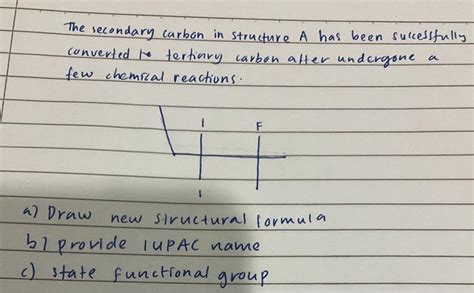 The secondary carbon in structure A has been successfully
converted to tertiary carbon after undergone a
few chemical reactions.
I F
I
a) Draw new structural formula
b) provide IUPAC name
c) state functional group